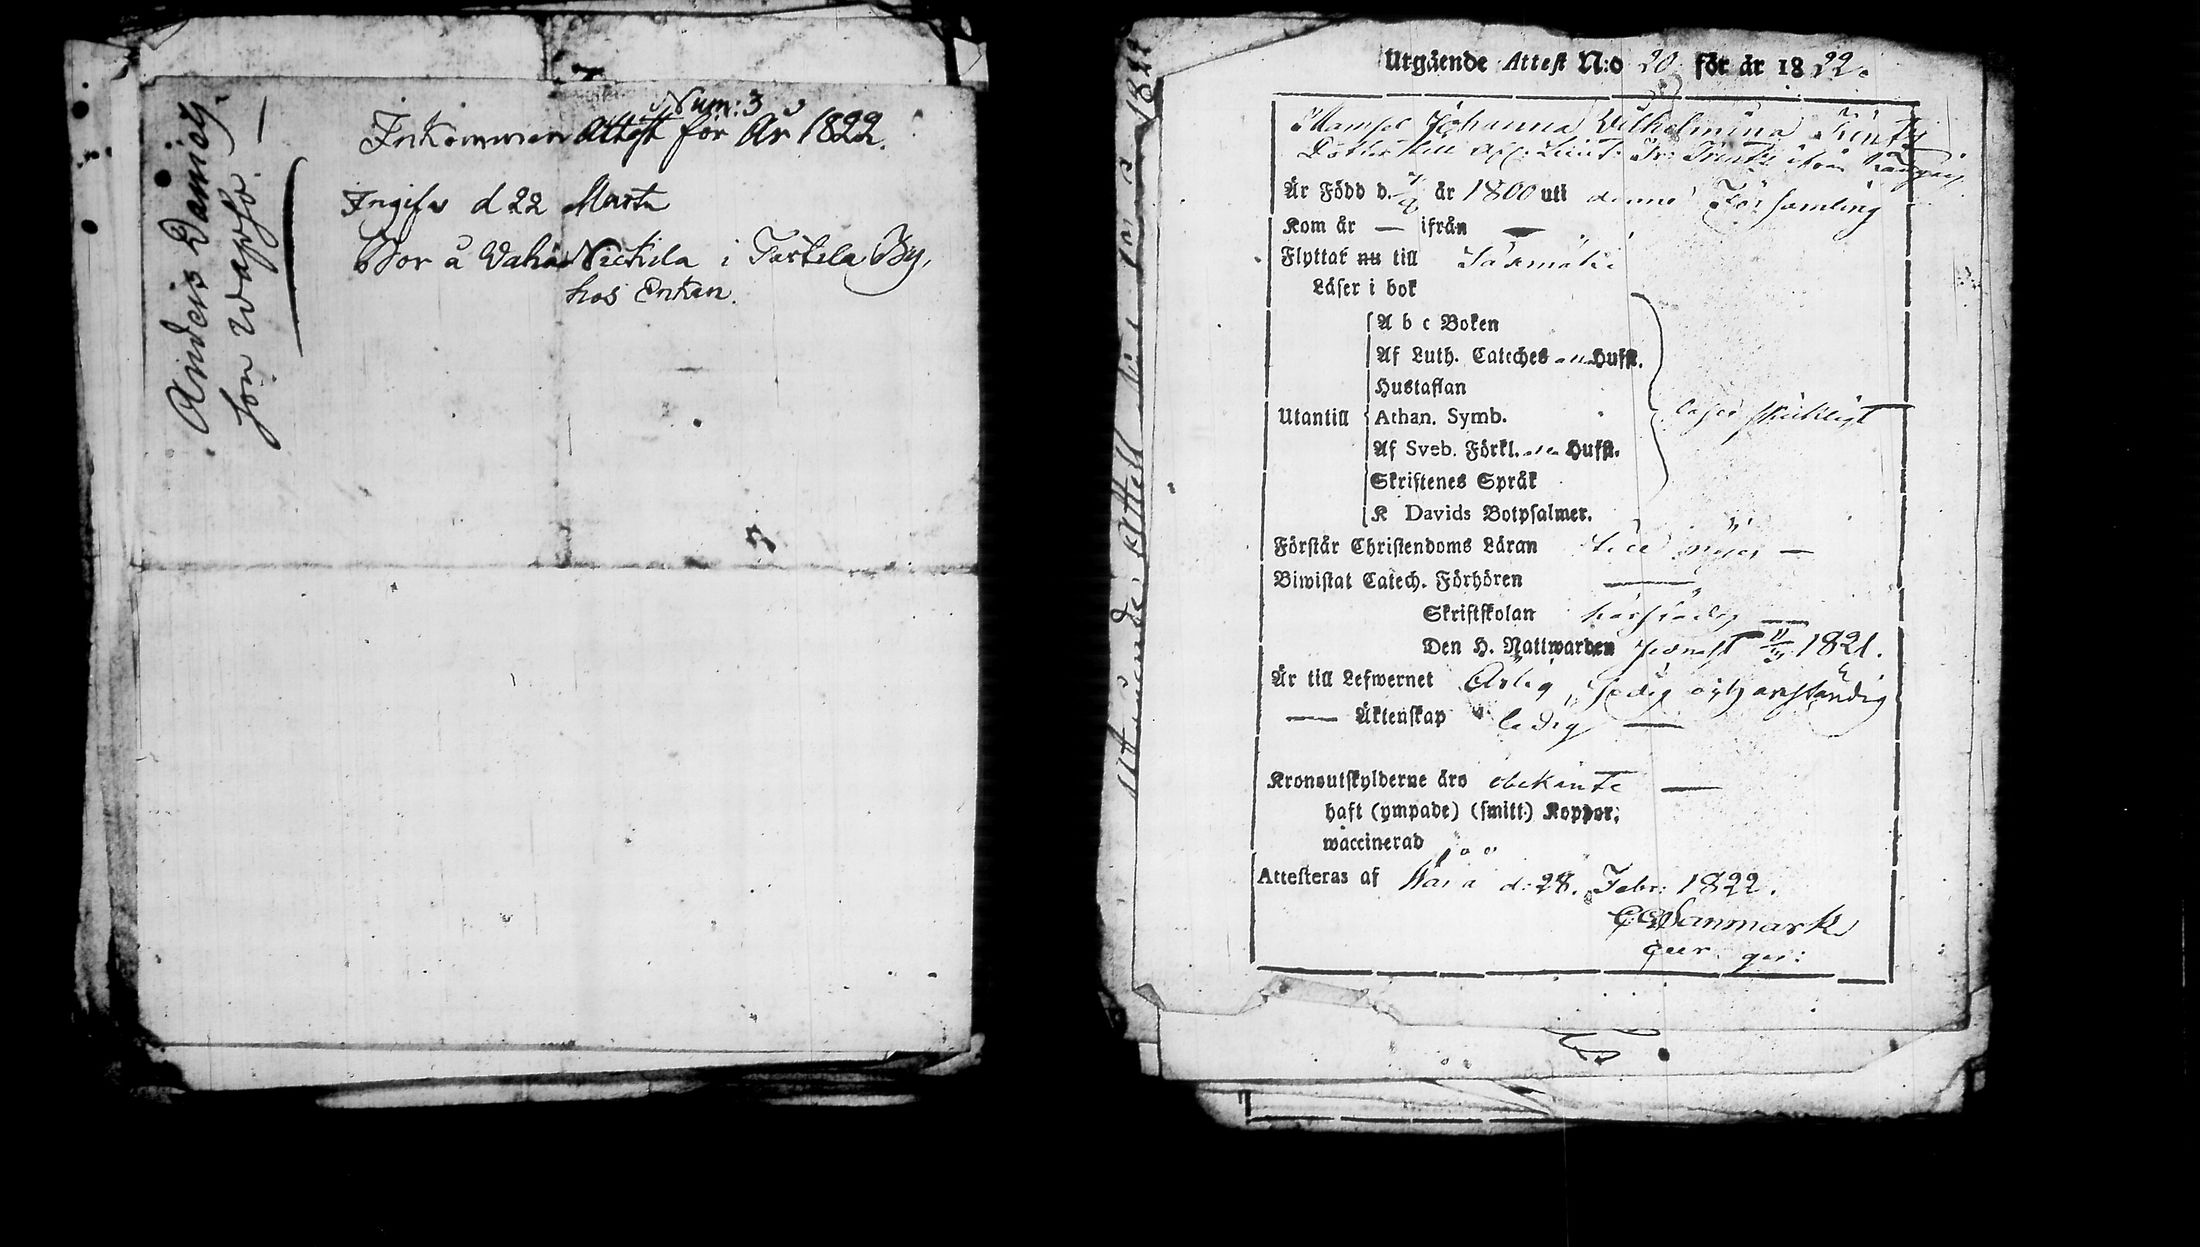 Anders Daniels
son Wapsä.
Num: 3
Inkommen Attest för År 1822.
Ingifv d 22 Marti
Bor å Vaha Nickila i Tackila By,
hos Enkan.
1822
Utgående Attest N:o 20 för år 1822.
Mamsel Johanna Wilhelmina
Dotter till
Är Född d. år 1800 uti denne Församling
Kom år — ifrån —
Flyttat nu till Säxmäki
Läser i bok
A b c Boken
Af Luth. Cateches Hufst.
Hustaflan
Utantill Athan. Symb.
Af Sveb. Förkl. Hufst.
Skriftenes Språk
K Davids Botpsalmer.
Förstår Christendoms Läran till nöjes —
Biwistat Catech. Förhören —
Skriftskolan —
Den H. Nattwarden senast 1821.
Är till Lefwernet Ärlig, sedig och anständig
— Äktenskap ledig —
Kronoutskylderne äro obekante —
haft (ympade) (smitt.) Koppor;
waccinerad
Attesteras af d. 28. Febr: 1822.